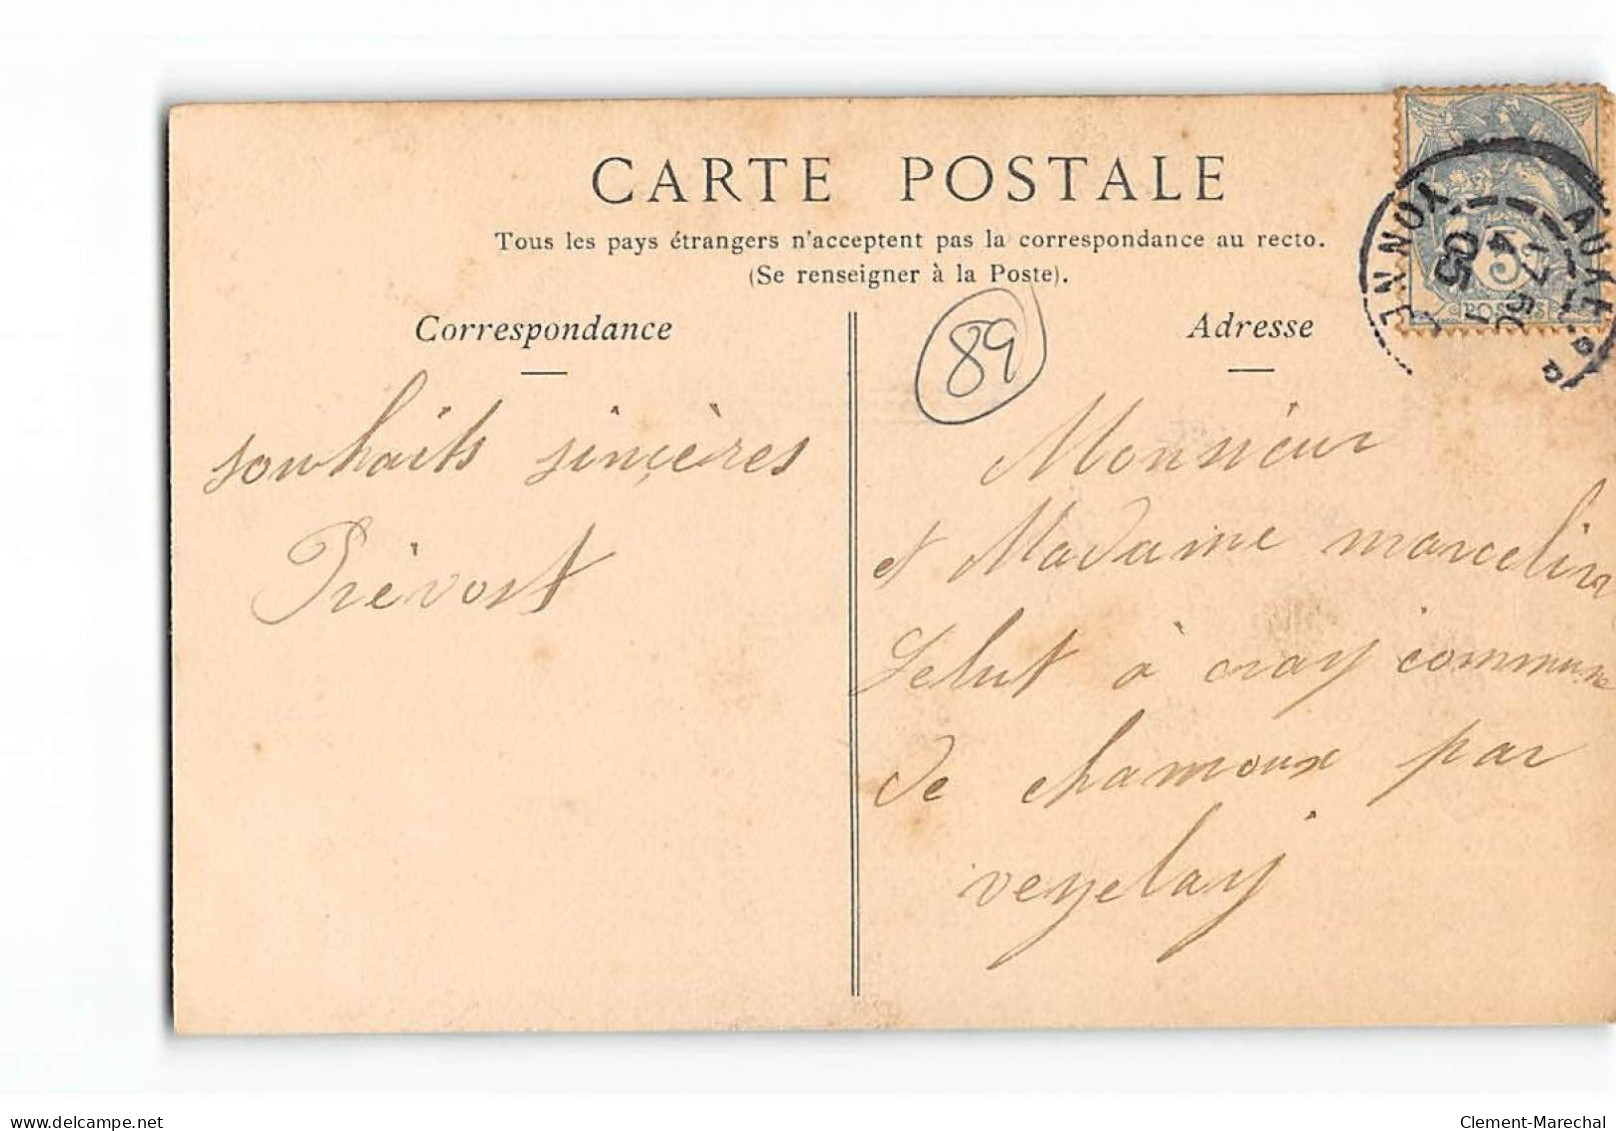 CARTE POSTALE
Tous les pays étrangers n'acceptent pas la correspondance au recto.
(Se renseigner à la Poste).
Correspondance
souhaits sinçères
Prévost
89
Adresse
Monsieur
et Madame marcelin
Lelut à cray commune
de chamoux par
vezelay
5
POSTES
YONNE
05
www.delcampe.net
Clement-Marechal